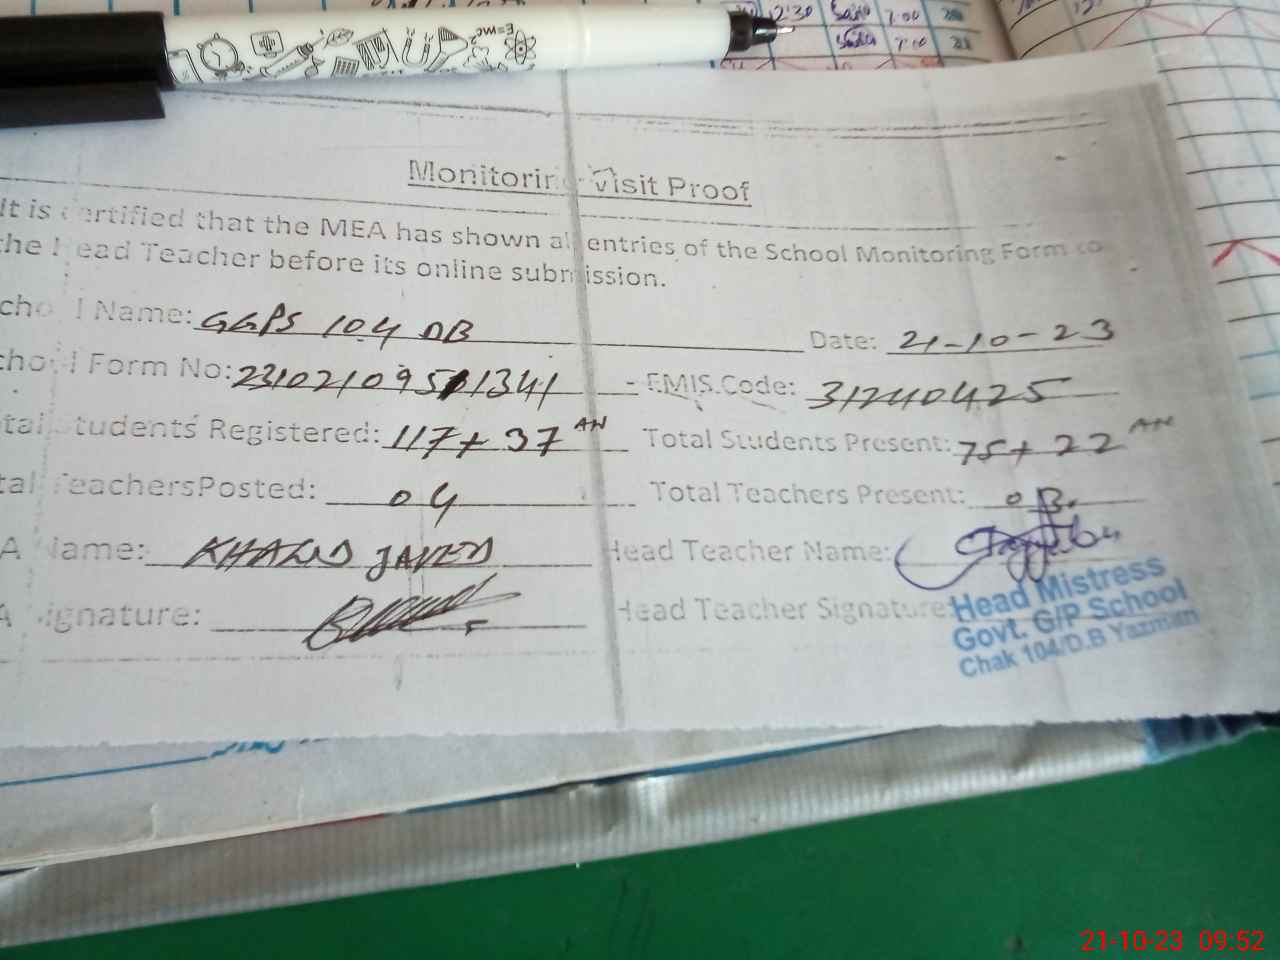 E=mc²
12:30 7:00
7:00
Monitoring Visit Proof
It is certified that the MEA has shown all entries of the School Monitoring Form to
the Head Teacher before its online submission.
chool Name: GGPS 104 DB Date: 21-10-23
chool Form No: 23102109501341 EMIS Code: 31240425
tal Students Registered: 117+37 AN Total Students Present: 75+22 AN
tal TeachersPosted: 04 Total Teachers Present: 03.
A Name: KHALID JAVED Head Teacher Name:
A Signature: Head Teacher Signature:
Head Mistress
Govt. G/P School
Chak 104/D.B Yazman
21-10-23 09:52